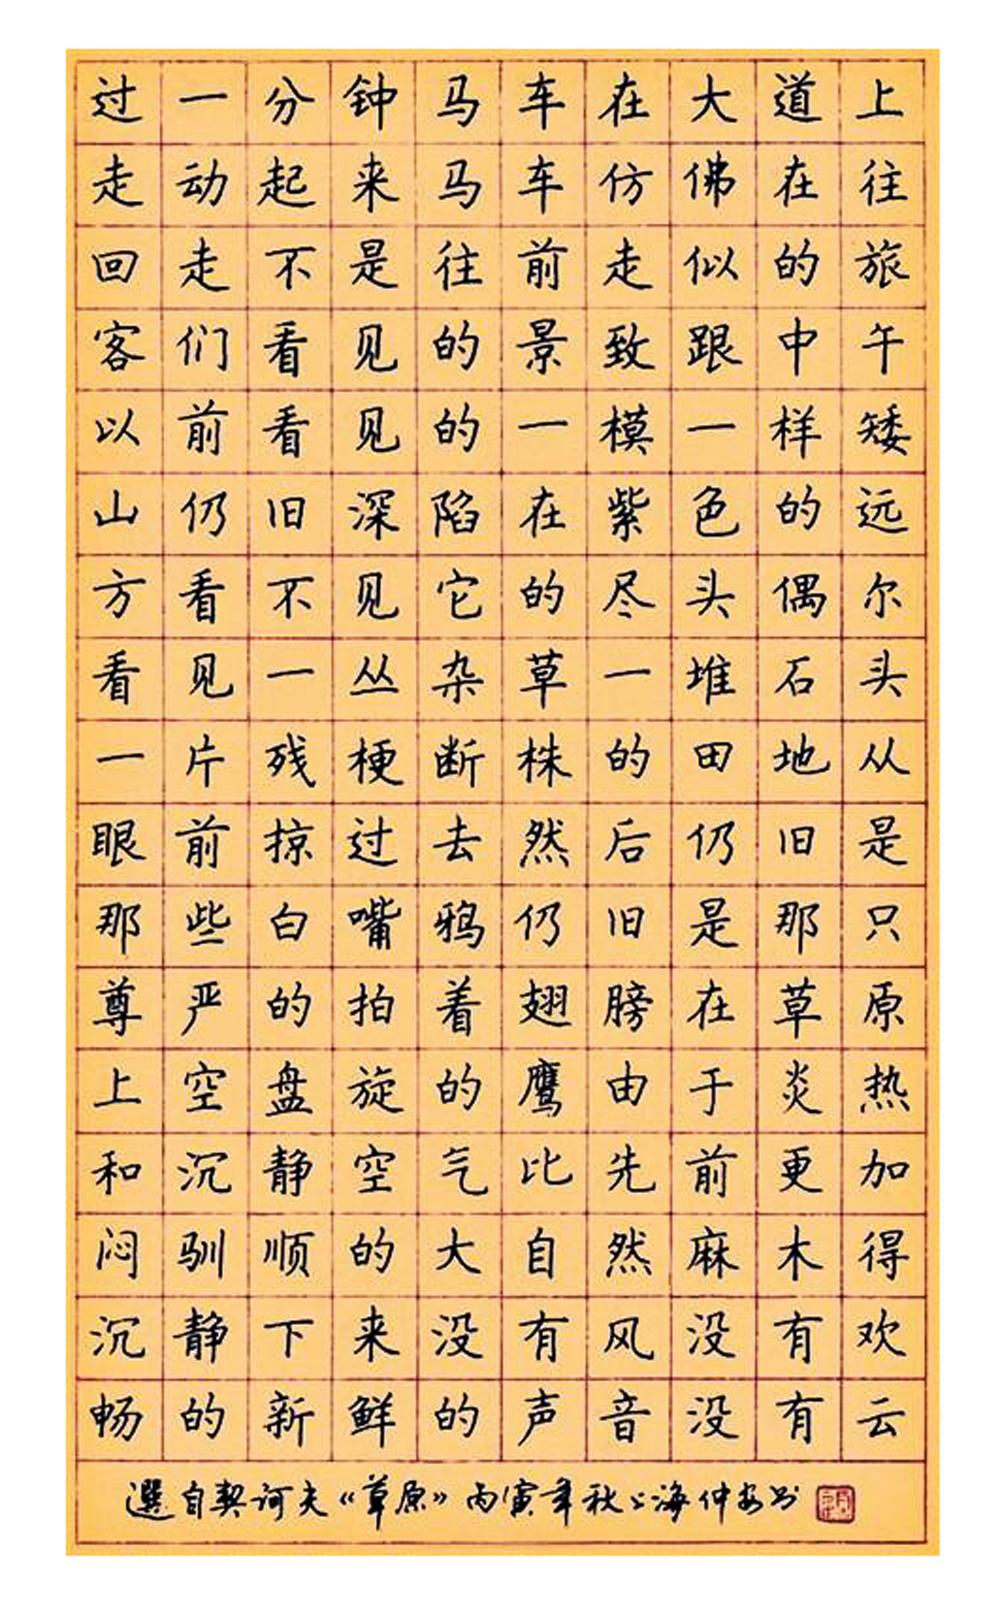 过一分钟马车在大道上
走动起来马车仿佛在往
回走不是往前走似的旅
客们看见的景致跟中午
以前看见的一模一样矮
山仍旧深陷在紫色的远
方看不见它的尽头偶尔
看见一丛杂草一堆石头
一片残梗断株的田地从
眼前掠过去然后仍旧是
那些白嘴鸦仍旧是那只
尊严的拍着翅膀在草原
上空盘旋的鹰由于炎热
和沉静空气比先前更加
闷驯顺的大自然麻木得
沉静下来没有风没有欢
畅的新鲜的声音没有云
選自契诃夫《草原》丙寅年秋上海仲安书